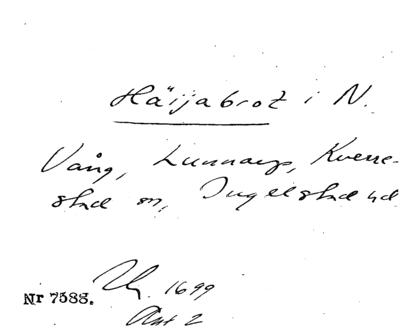 Häijabrot i N.
Vång, Lunnarp, Kverre-
stad sn, Ingelstad hd
Nr 7588. 1699
Akt 2